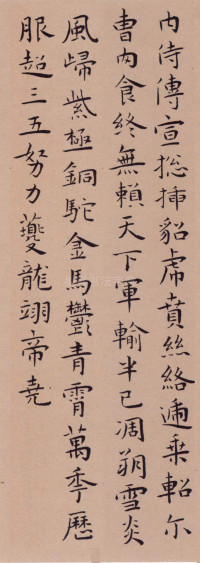 內侍傳宣捴插貂虎賁絲絡逓乗軺尔
曹內食終無賴天下軍輸半已凋朔雪炎
風歸紫極銅駝金馬鬱青霄萬季歷
服超三五努力夔龍翊帝堯